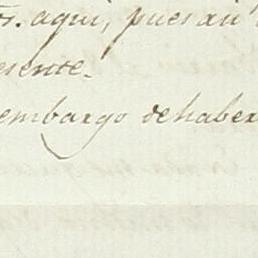 rs. aqui, pues au
esente.
embargo de haber